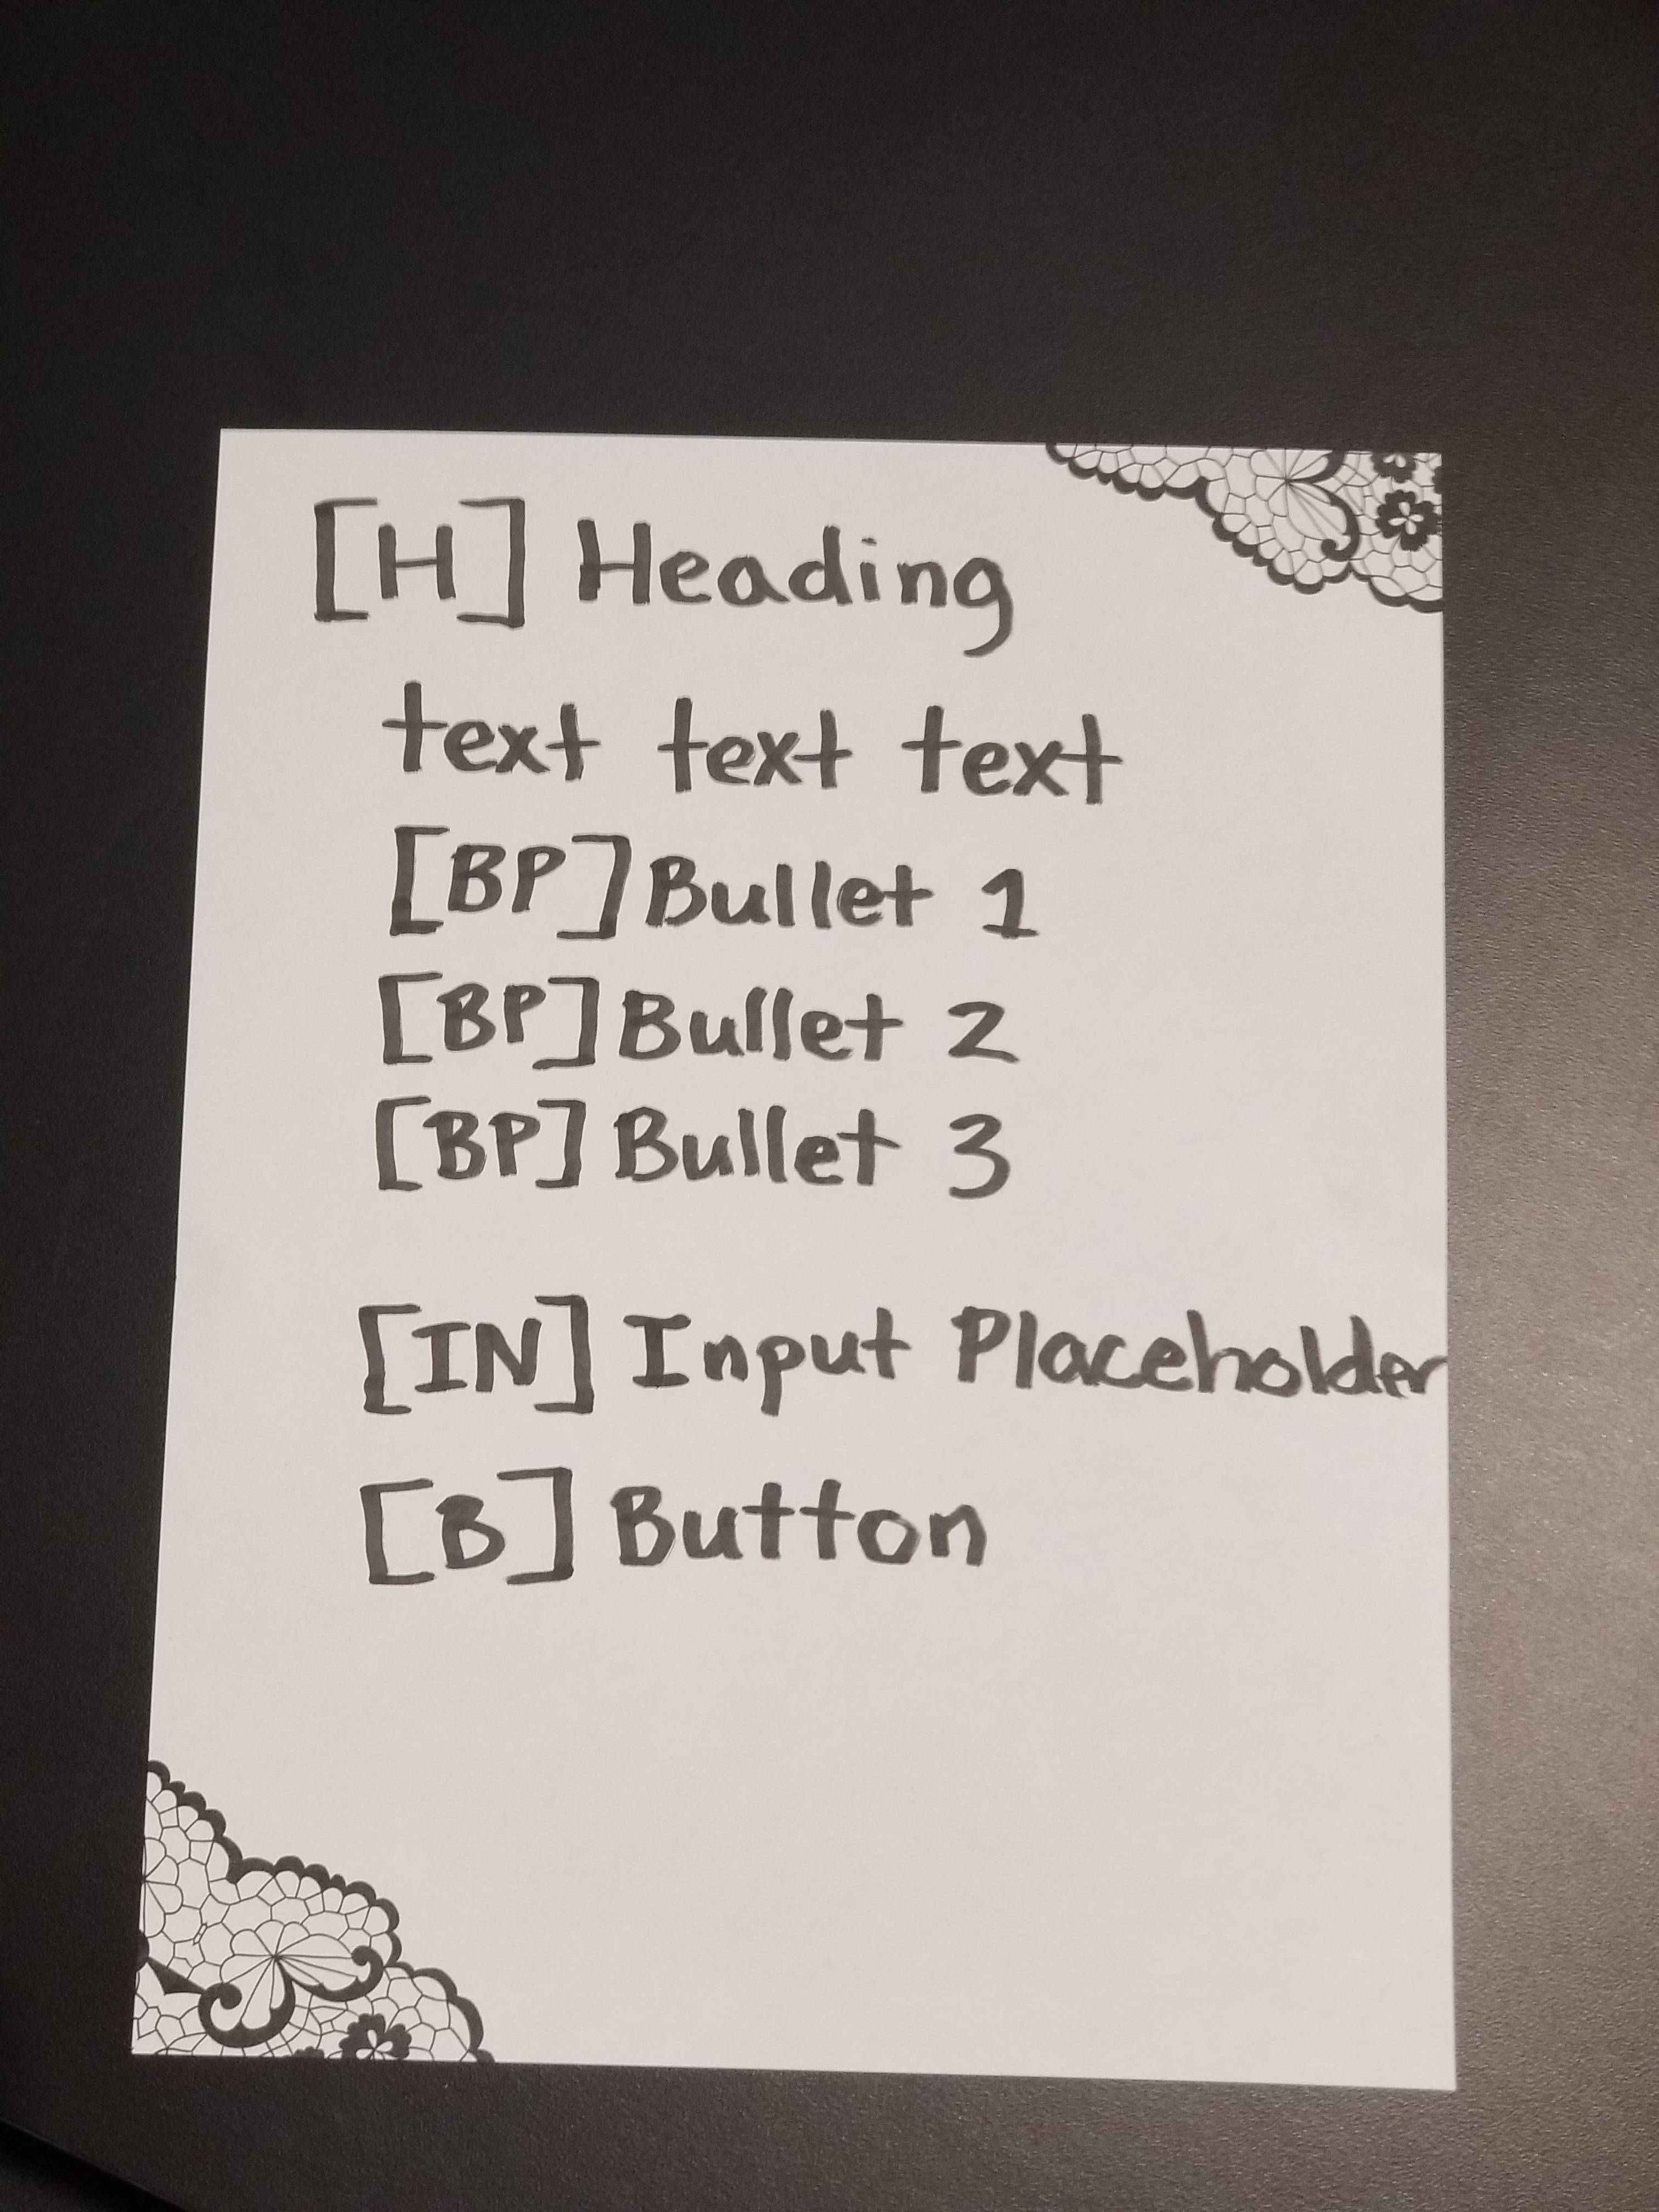 [H] Heading
text text text
[BP] Bullet 1
[BP] Bullet 2
[BP] Bullet 3
[IN] Input Placeholder
[B] Button